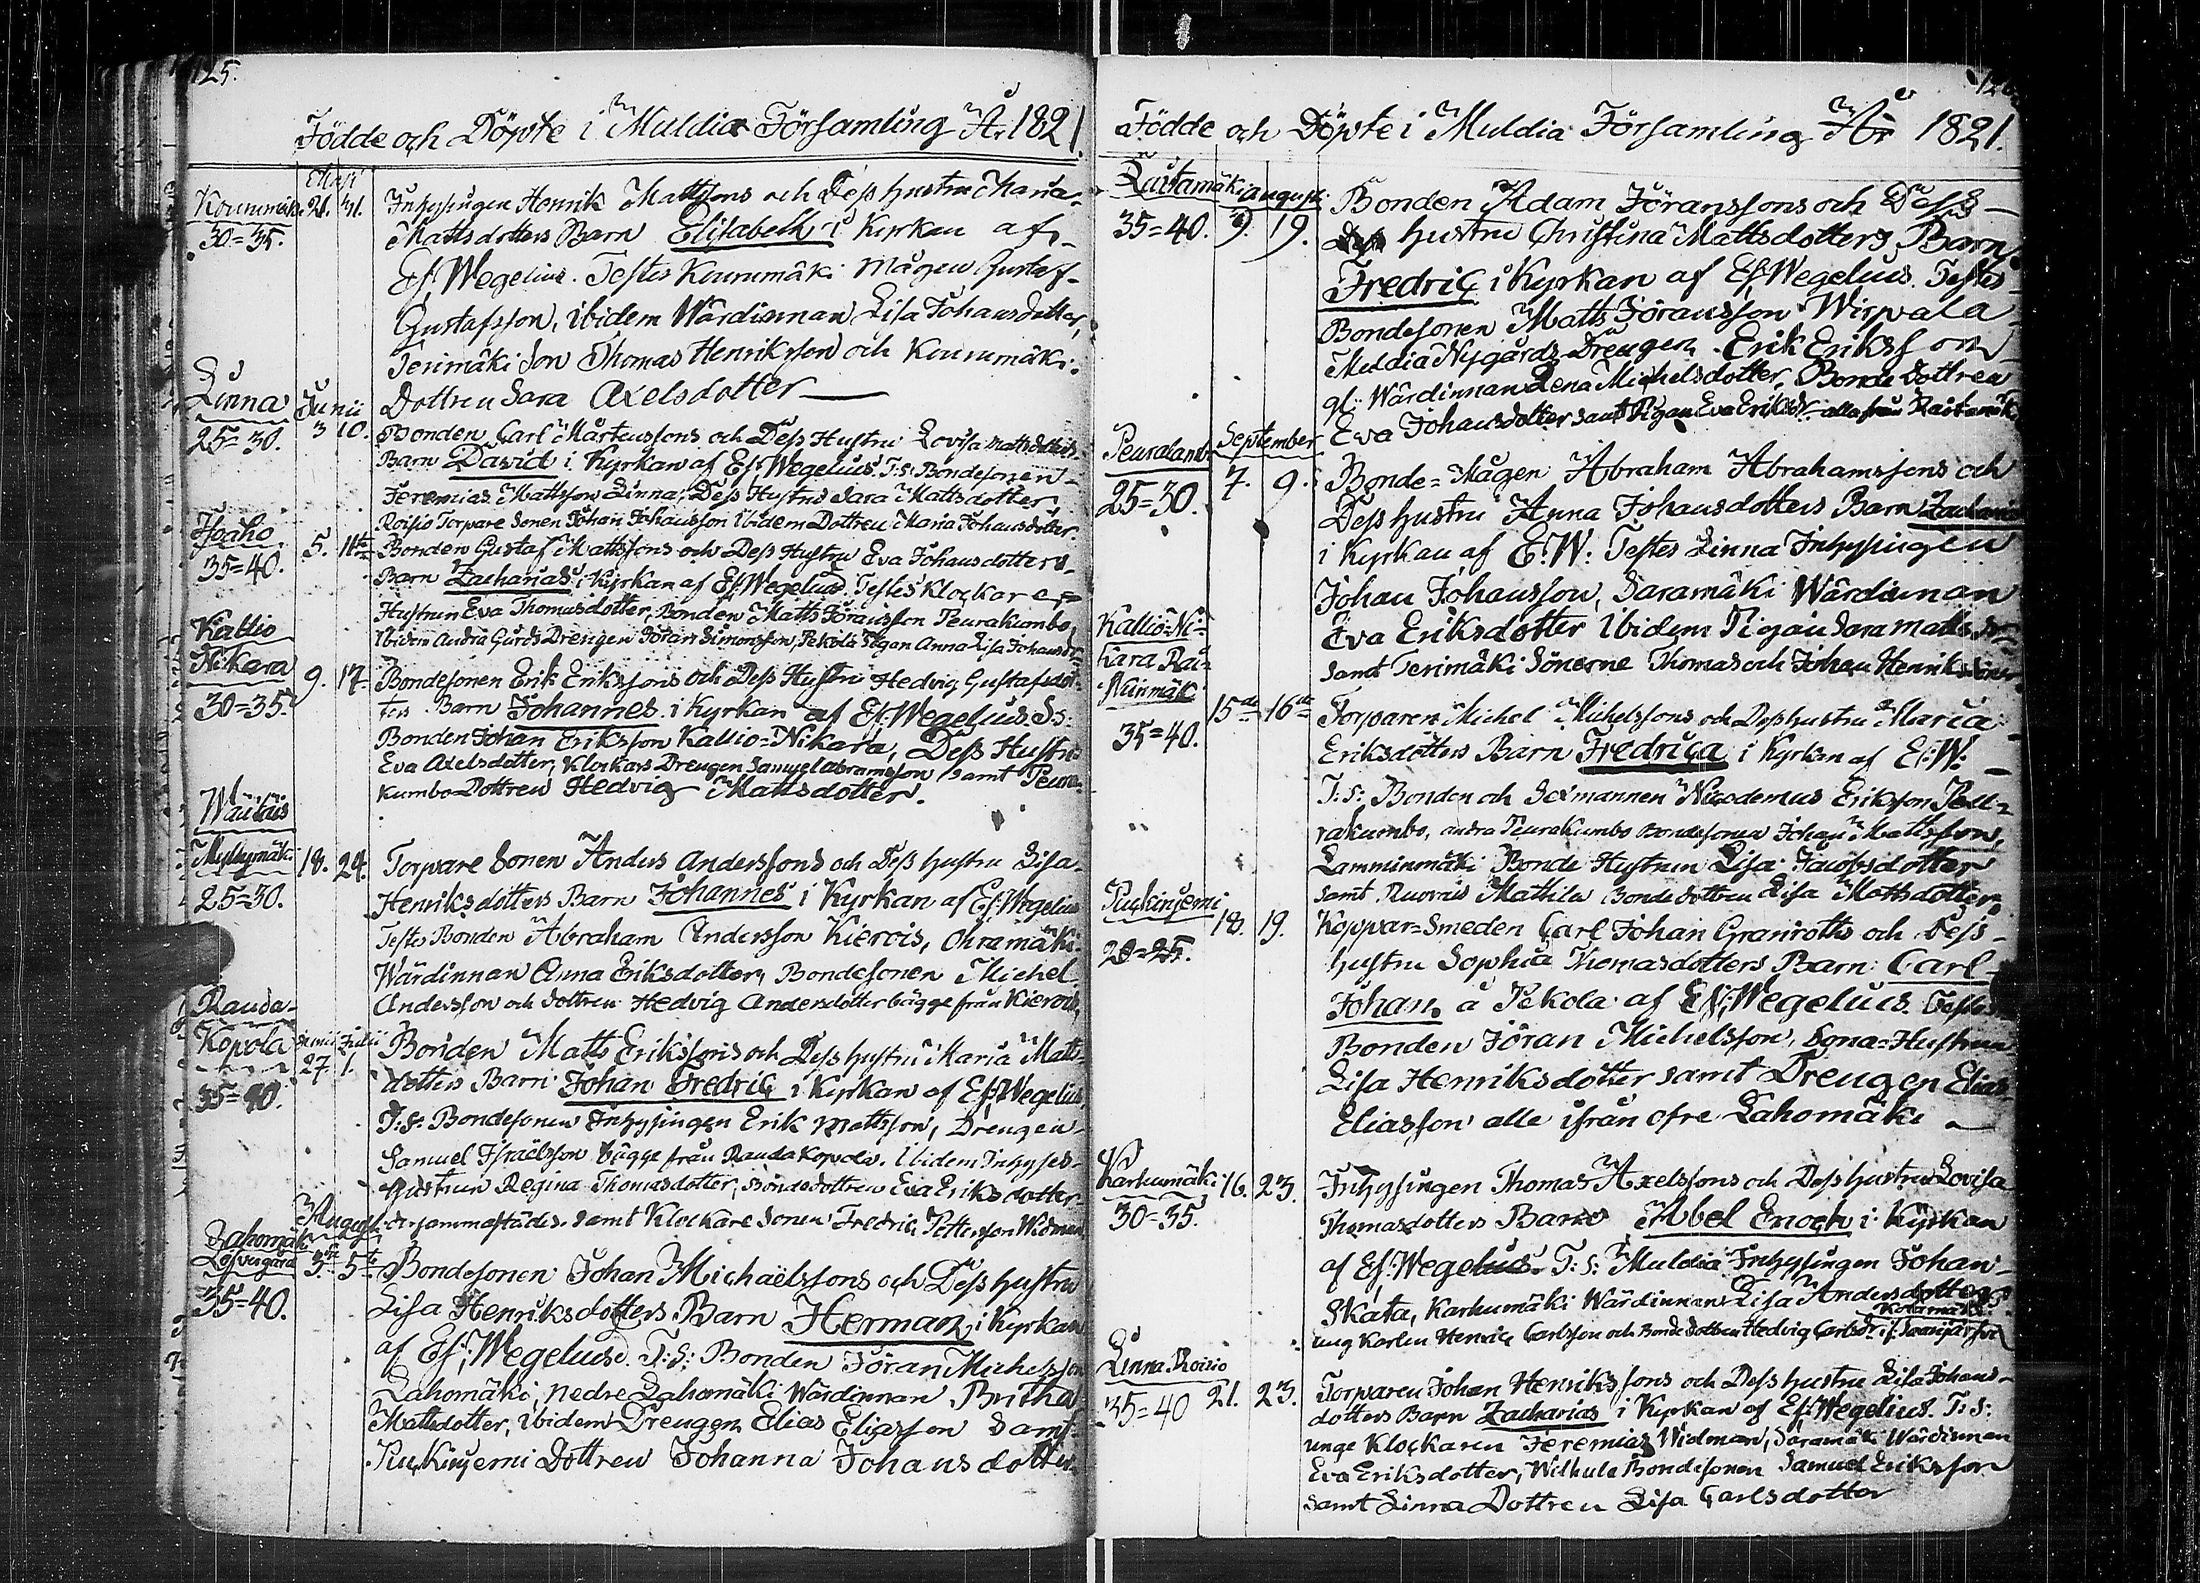 125.
Födde och Döpte i Muldia Församling År 1821.
Maji
Kourumäki 21. 31.
30=35.
Inhysingen Henrik Mattssons och Dess hustru Maria
Mattsdotters Barn Elisabeth i Kyrkan af
Ef: Wegelius. Testes Kourumäki Mågen Gustaf
Gustafsson, ibidem Wärdinnan Lisa Johansdotter,
Terimäki Son Thomas Henriksson och Kourumäki
Dottren Sara Axelsdotter
Linna Junii
25=30. 3 10.
Bonden Carl Mårtenssons och Dess Hustru Lovisa Mattsdotters
Barn David i Kyrkan af Ef: Wegelius. T:S: Bondesonen
Jeremias Mattsson Linna, Dess Hustru Sara Mattsdotter,
Roisio Torpare Sonen Johan Johansson ibidem Dottren Maria Johansdotter
Isoaho
35=40. 5. 11te
Bonden Gustaf Mattssons och Dess Hustru Eva Johansdotters
Barn Zacharias i Kyrkan af Ef: Wegelius. Testes Klockare
Hustrun Eva Thomasdotter, Bonden Matts Göransson Peurakumbo,
ibidem Andra Gårds Drengen Göran Simonsson, Pekola Pigan Anna Lisa Johansdr
Kallio
Nikara
30=35. 9. 17.
Bondesonen Erik Erikssons och Dess Hustru Hedvig Gustafsdot-
ters Barn Johannes i Kyrkan af Ef: Wegelius. T:S:
Bonden Johan Eriksson Kallio=Nikara, Dess Hustru
Eva Axelsdotter, Klockars Drengen Samuel Abramsson samt Peura-
kumbo Dottren Hedvig Mattsdotter.
Wäitäis
Myllymäki
25=30. 18. 24.
Torpare Sonen Anders Anderssons och Dess hustru Lisa
Henriksdotters Barn Johannes i Kyrkan af Ef: Wegelius
Testes Bonden Abraham Andersson Kierois, Ohramäki
Wärdinnan Anna Eriksdotter, Bondesonen Michel
Andersson och Dottren Hedvig Andersdotter bägge från Kierois,
Rauda-
Kopola Junii Julii
27. 1.
35=40.
Bonden Matts Erikssons och Dess hustru Maria Matts-
dotters Barn Johan Fredric i Kyrkan af Ef: Wegelius,
T:S: Bondesonen Inhysingen Erik Mattsson, Drengen
Samuel Israelsson bägge från Rauda Kopola. ibidem Inhyses-
Hustrun Regina Thomasdotter, Bondedottren Eva Eriksdotter
dersammastädes. samt Klockare Sonen Fredric Pettersson Widman
Lahomäki August:
Löfvergård 3de 5te
35=40.
Bondesonen Johan Michaëlssons och Dess hustru
Lisa Henriksdotters Barn Herman i Kyrkan
af Ef: Wegelius. T:S: Bonden Jöran Michelsson
Lahomäki, nedre Lahomäki Wärdinnan Britha
Mattsdotter, ibidem Drengen Elias Eliasson samt
Puckinjemi Dottren Johanna Johansdotter

Födde och Döpte i Muldia Församling År 1821.
Raitamäki August:
35=40. 9. 19.
Bonden Adam Jöranssons och Dess
hustru Christina Mattsdotters Barn
Fredric i Kyrkan af Ef: Wegelius. Testes
Bondesonen Matts Jöransson Wirpala
Muldia Nygårds Drengen Erik Eriksson
gl: Wärdinnan Lena Michelsdotter, Bonde Dottren
Eva Johansdotter samt Pigan Eva Eriksdr alla från Raitamäki
Peuralambi September
25=30. 7. 9.
Bonde=Mågen Abraham Abrahamssons och
Dess hustru Anna Johansdotters Barn Zacharias
i Kyrkan af E:W: Testes Linna Inhysingen
Johan Johansson, Saramäki Wärdinnan
Eva Eriksdotter ibidem Pigan Sara Mattsdr
samt Terimäki Sönerne Thomas och Johan Henrikssöner
Kallio=Ni-
kara Rau-
Niinmäki
35=40. 15de 16de
Torparen Michel Michelssons och Dess hustru Maria
Eriksdotters Barn Fredrica i Kyrkan af E:W:
T:S: Bonden och Sexmannen Nicodemus Eriksson Peu-
rakumbo, andra Peurakumbo Bondesonen Johan Mattsson,
Lamminmäki Bonde Hustrun Lisa Jacobsdotter
samt Ruovesi Mathila Bondedottren Lisa Mattsdotter
Puckinjemi
20=25. 18. 19.
Koppar=Smeden Carl Johan Granroths och Dess
hustru Sophia Thomasdotters Barn Carl
Johan å Pekola af Ef: Wegelius. Testes
Bonden Jöran Michelsson, Sona=Hustrun
Lisa Henriksdotter samt Drengen Elias
Eliasson alle ifrån öfre Lahomäki
Karhumäki 16. 23.
30=35.
Inhysingen Thomas Axelssons och Dess hustru Lovisa
Thomasdotters Barn Abel Enoch i Kyrkan
af Ef: Wegelius. T:S: Muldia Inhysingen Johan
Skata, Karhumäki Wärdinnan Lisa Andersdotter
ung Karlen Henric Carlsson och Bonde Dottren Hedvig Carlsdr
Linna Roisio
35=40 21. 23.
Torparen Johan Henrikssons och Dess hustru Lisa Johans-
dotters Barn Zacharias i Kyrkan af Ef: Wegelius. T:S:
unge Klockaren Jeremias Widman, Saramäki Wärdinnan
Eva Eriksdotter, Wilhula Bondesonen Samuel Eriksson
samt Linna Dottren Lisa Carlsdotter